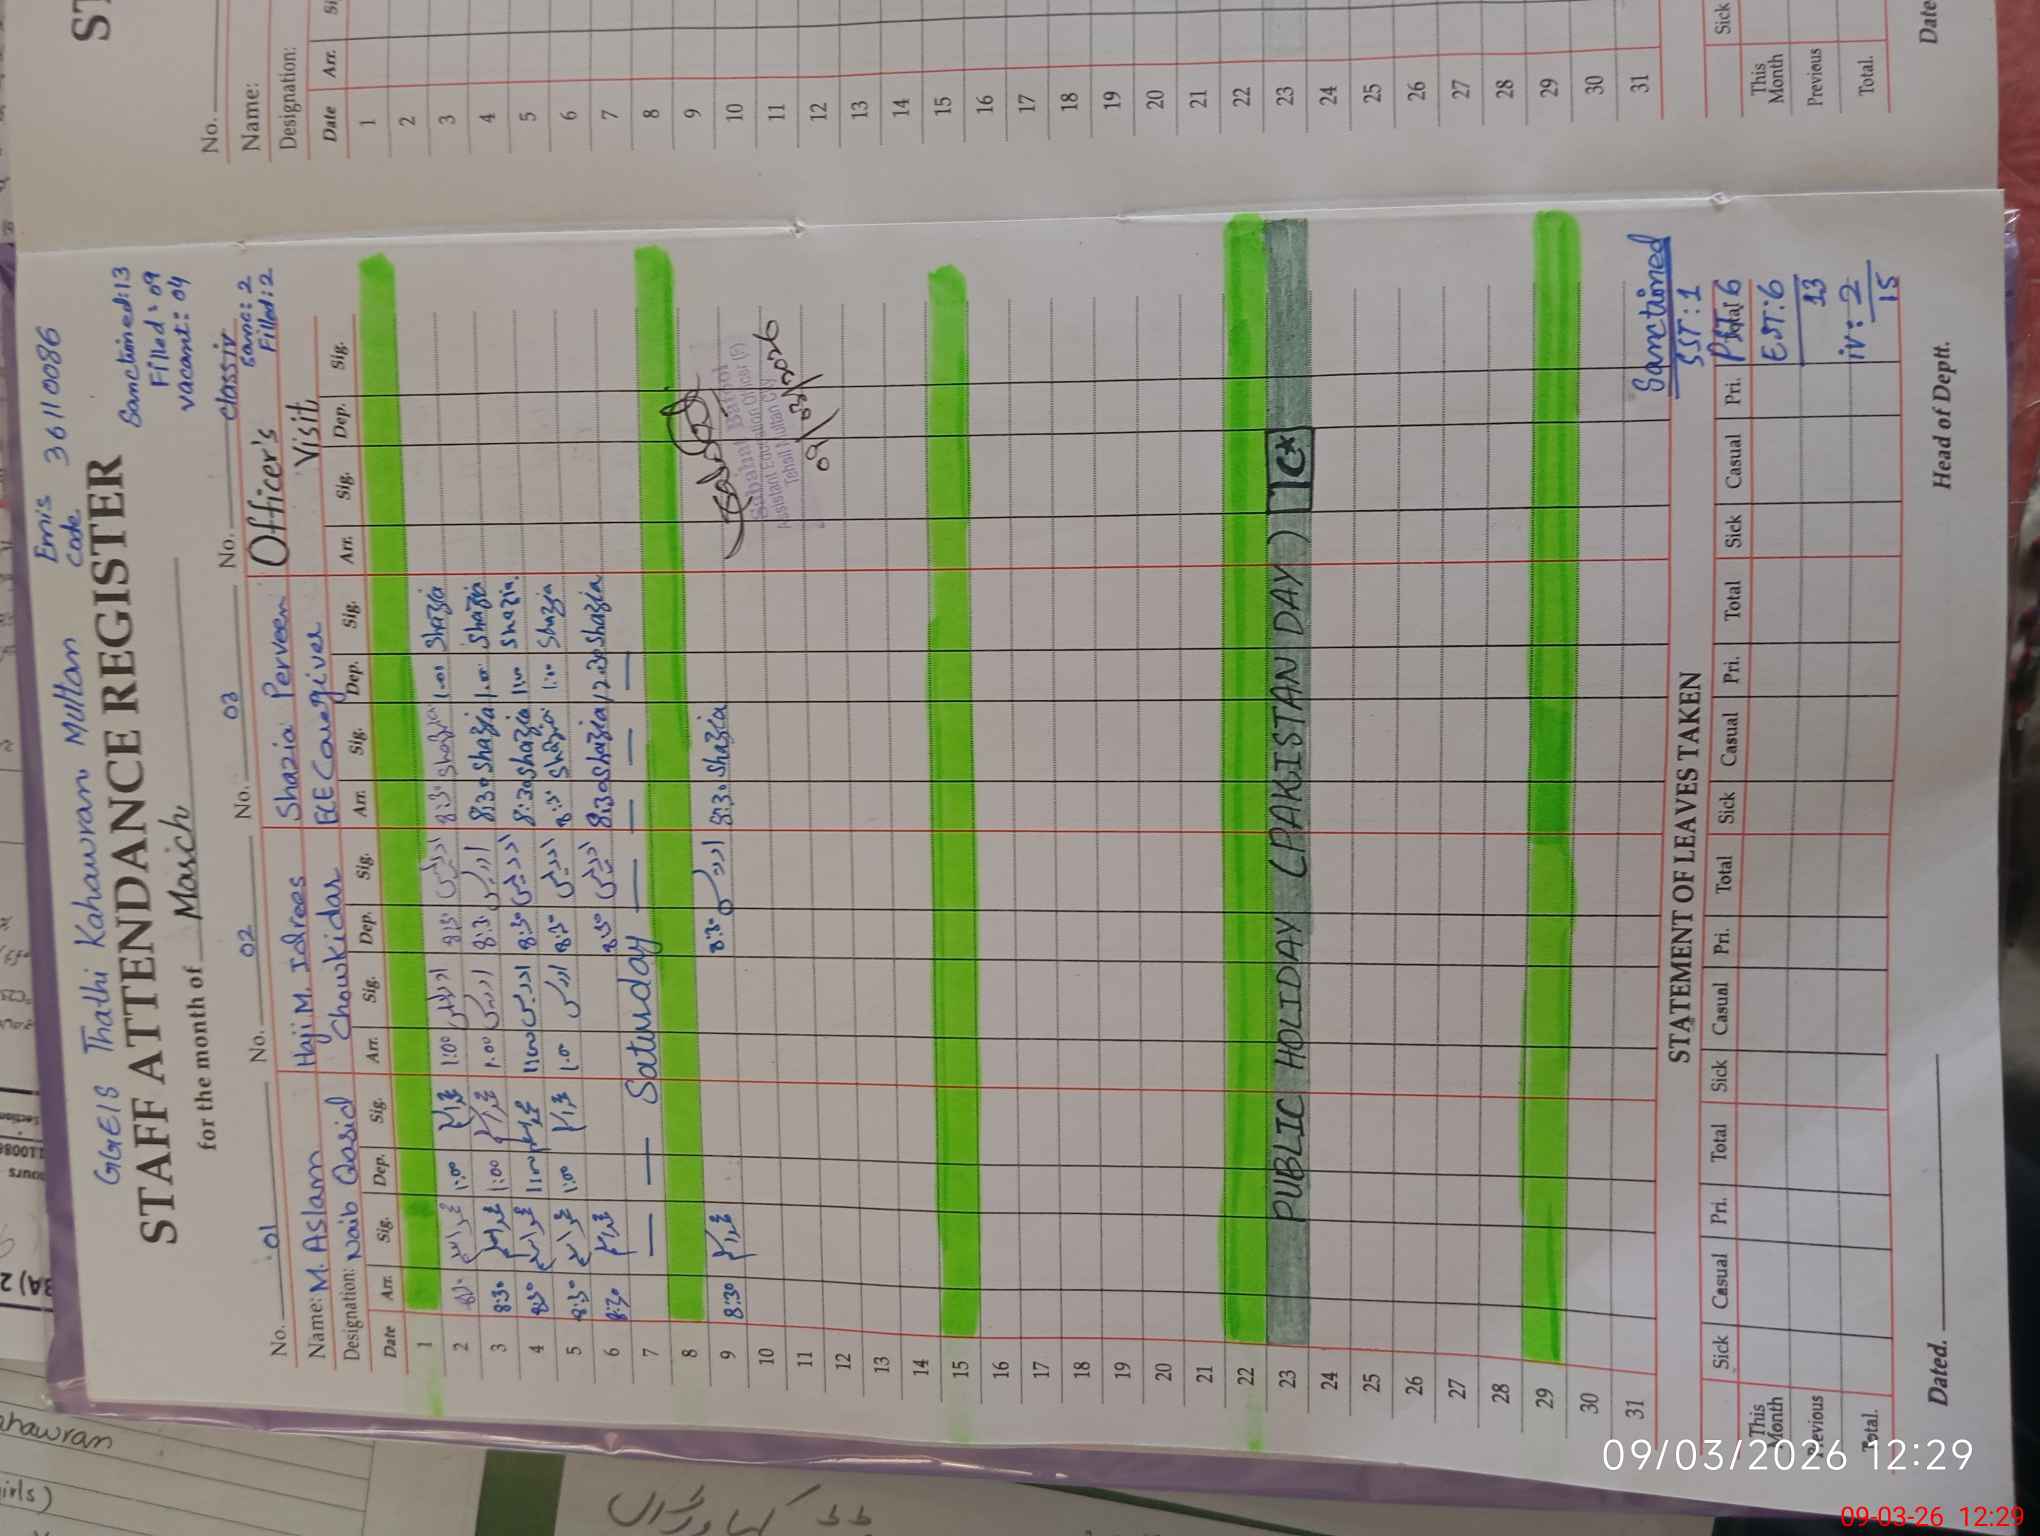 GGEIS Thathi Kahawran Multan Emis Code 36110086
STAFF ATTENDANCE REGISTER
for the month of March
Sanctioned:13
Filled: 09
vacant: 04
classiv
Sanc: 2
Filled: 2
No. 01 No. 02 No. 03 No.
Name: M. Aslam Haji M. Idrees Shazia Perveen Officer's Visit
Designation: Naib Qasid Chowkidar ECE Caregiver
Date Arr. Sig. Dep. Sig. Arr. Sig. Dep. Sig. Arr. Sig. Dep. Sig. Arr. Sig. Dep. Sig.
1
2 1:00 1:00 8:30 8:30 Shazia 1:00 Shazia
3 8:30 1:00 1:00 8:30 8:30 Shazia 1:00 Shazia
4 8:30 1:00 1:00 8:30 8:30 Shazia 1:00 Shazia.
5 8:30 1:00 1:0 8:30 8:30 Shazia 1:00 Shazia
6 8:30 8:30 8:30 Shazia 12:30 Shazia
7 — — Saturday — — — —
8
9 8:30 8:30 8:30 Shazia
Assistant Education Officer (F)
Tehsil Multan City
09/03/2026
10
11
12
13
14
15
16
17
18
19
20
21
22
23 PUBLIC HOLIDAY (PAKISTAN DAY) C*
24
25
26
27
28
29
30
31
STATEMENT OF LEAVES TAKEN
Sanctioned
SST: 1
PST 6
EST: 6
13
iv: 2
15
Sick Casual Pri. Total Sick Casual Pri. Total Sick Casual Pri. Total Sick Casual Pri. Total
This Month
Previous
Total.
Dated. Head of Deptt.
No.
Name:
Designation:
Date Arr.
1
2
3
4
5
6
7
8
9
10
11
12
13
14
15
16
17
18
19
20
21
22
23
24
25
26
27
28
29
30
31
Sick
This Month
Previous
Total.
Date
09/03/2026 12:29
09-03-26 12:29